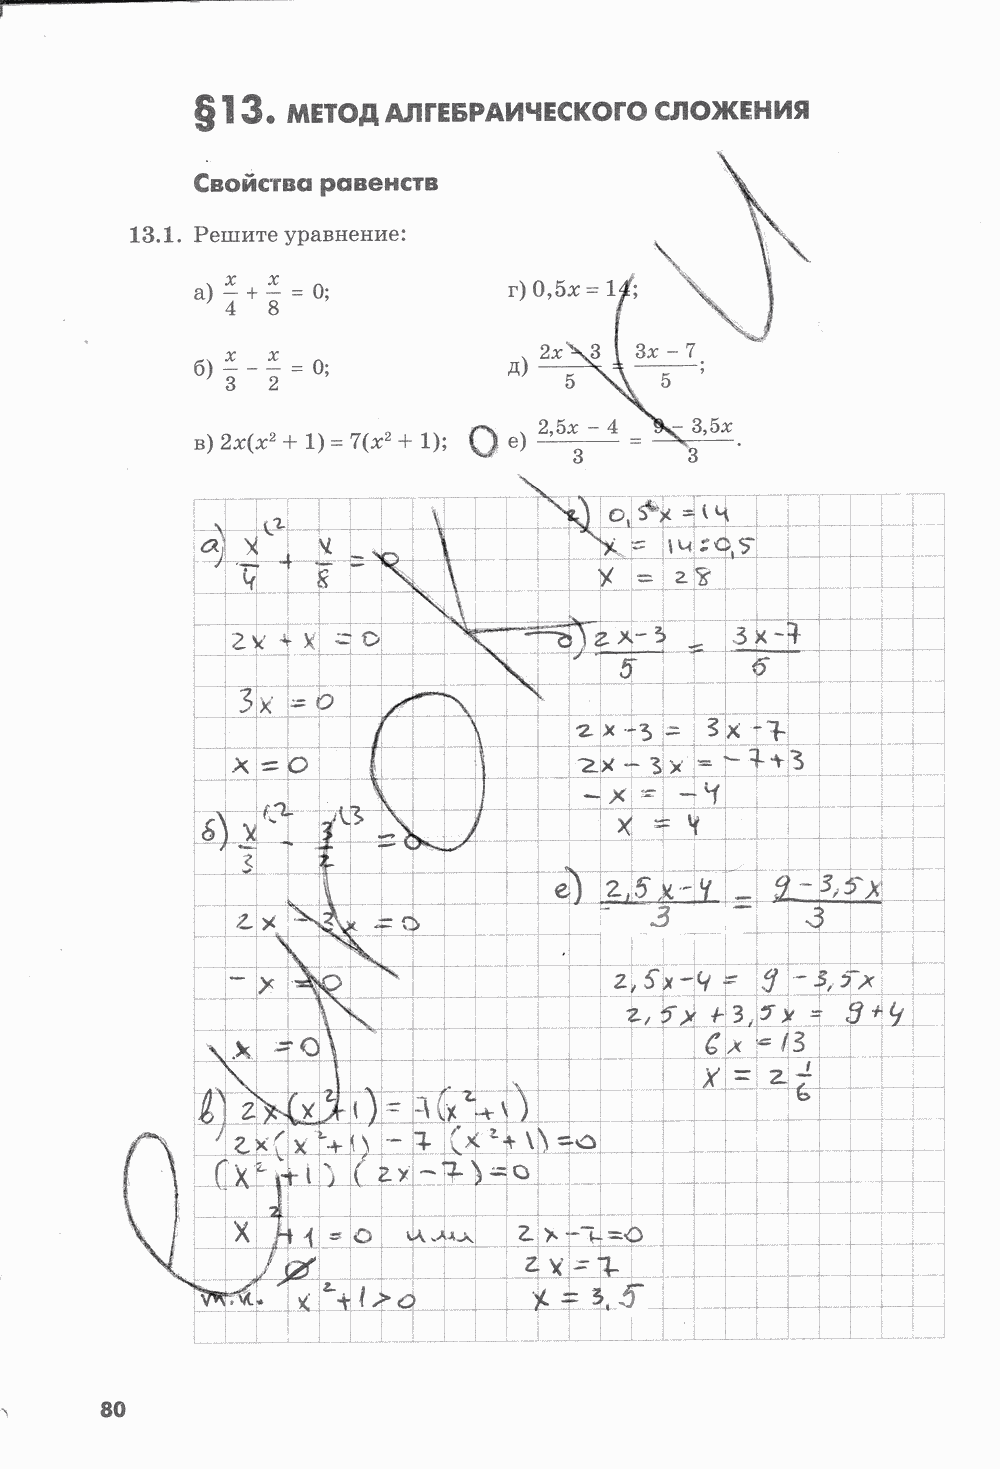 §13. МЕТОД АЛГЕБРАИЧЕСКОГО СЛОЖЕНИЯ
Свойства равенств
13.1. Решите уравнение:
а) x/4 + x/8 = 0;
г) 0,5x = 14;
б) x/3 − x/2 = 0;
д) (2x − 3)/5 = (3x − 7)/5;
в) 2x(x² + 1) = 7(x² + 1);
е) (2,5x − 4)/3 = (9 − 3,5x)/3.
а) x/4 (2 + x/8 = 0
2x + x = 0
3x = 0
x = 0
б) x/3 (2 − 3/2 (3 = 0
2x − 3x = 0
− x = 0
x = 0
в) 2x(x²+1) = 7(x²+1)
2x(x²+1) − 7 (x²+1) = 0
(x²+1) (2x−7) = 0
x²+1 = 0 или 2x−7=0
∅ 2x = 7
т.к. x²+1>0 x = 3,5
г) 0,5x = 14
x = 14:0,5
x = 28
д) (2x−3)/5 = (3x−7)/5
2x−3 = 3x−7
2x − 3x = −7+3
− x = −4
x = 4
е) (2,5x−4)/3 = (9−3,5x)/3
2,5x−4 = 9 −3,5x
2,5x +3,5x = 9+4
6x = 13
x = 2 1/6
80